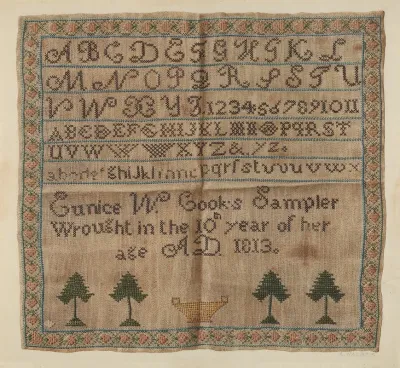 A B C D E F G H I K L
M N O P Q R S T U
V W X Y Z 1 2 3 4 5 6 7 8 9 10 11
A B C D E F G H I J K L M N O P Q R S T
U V W X Y Z & . y z .
a b c d e f g h i j k l m n o p q r s t u v w x
Eunice W. Cooks Sampler
Wrought in the 10th year of her
age A.D. 1813.